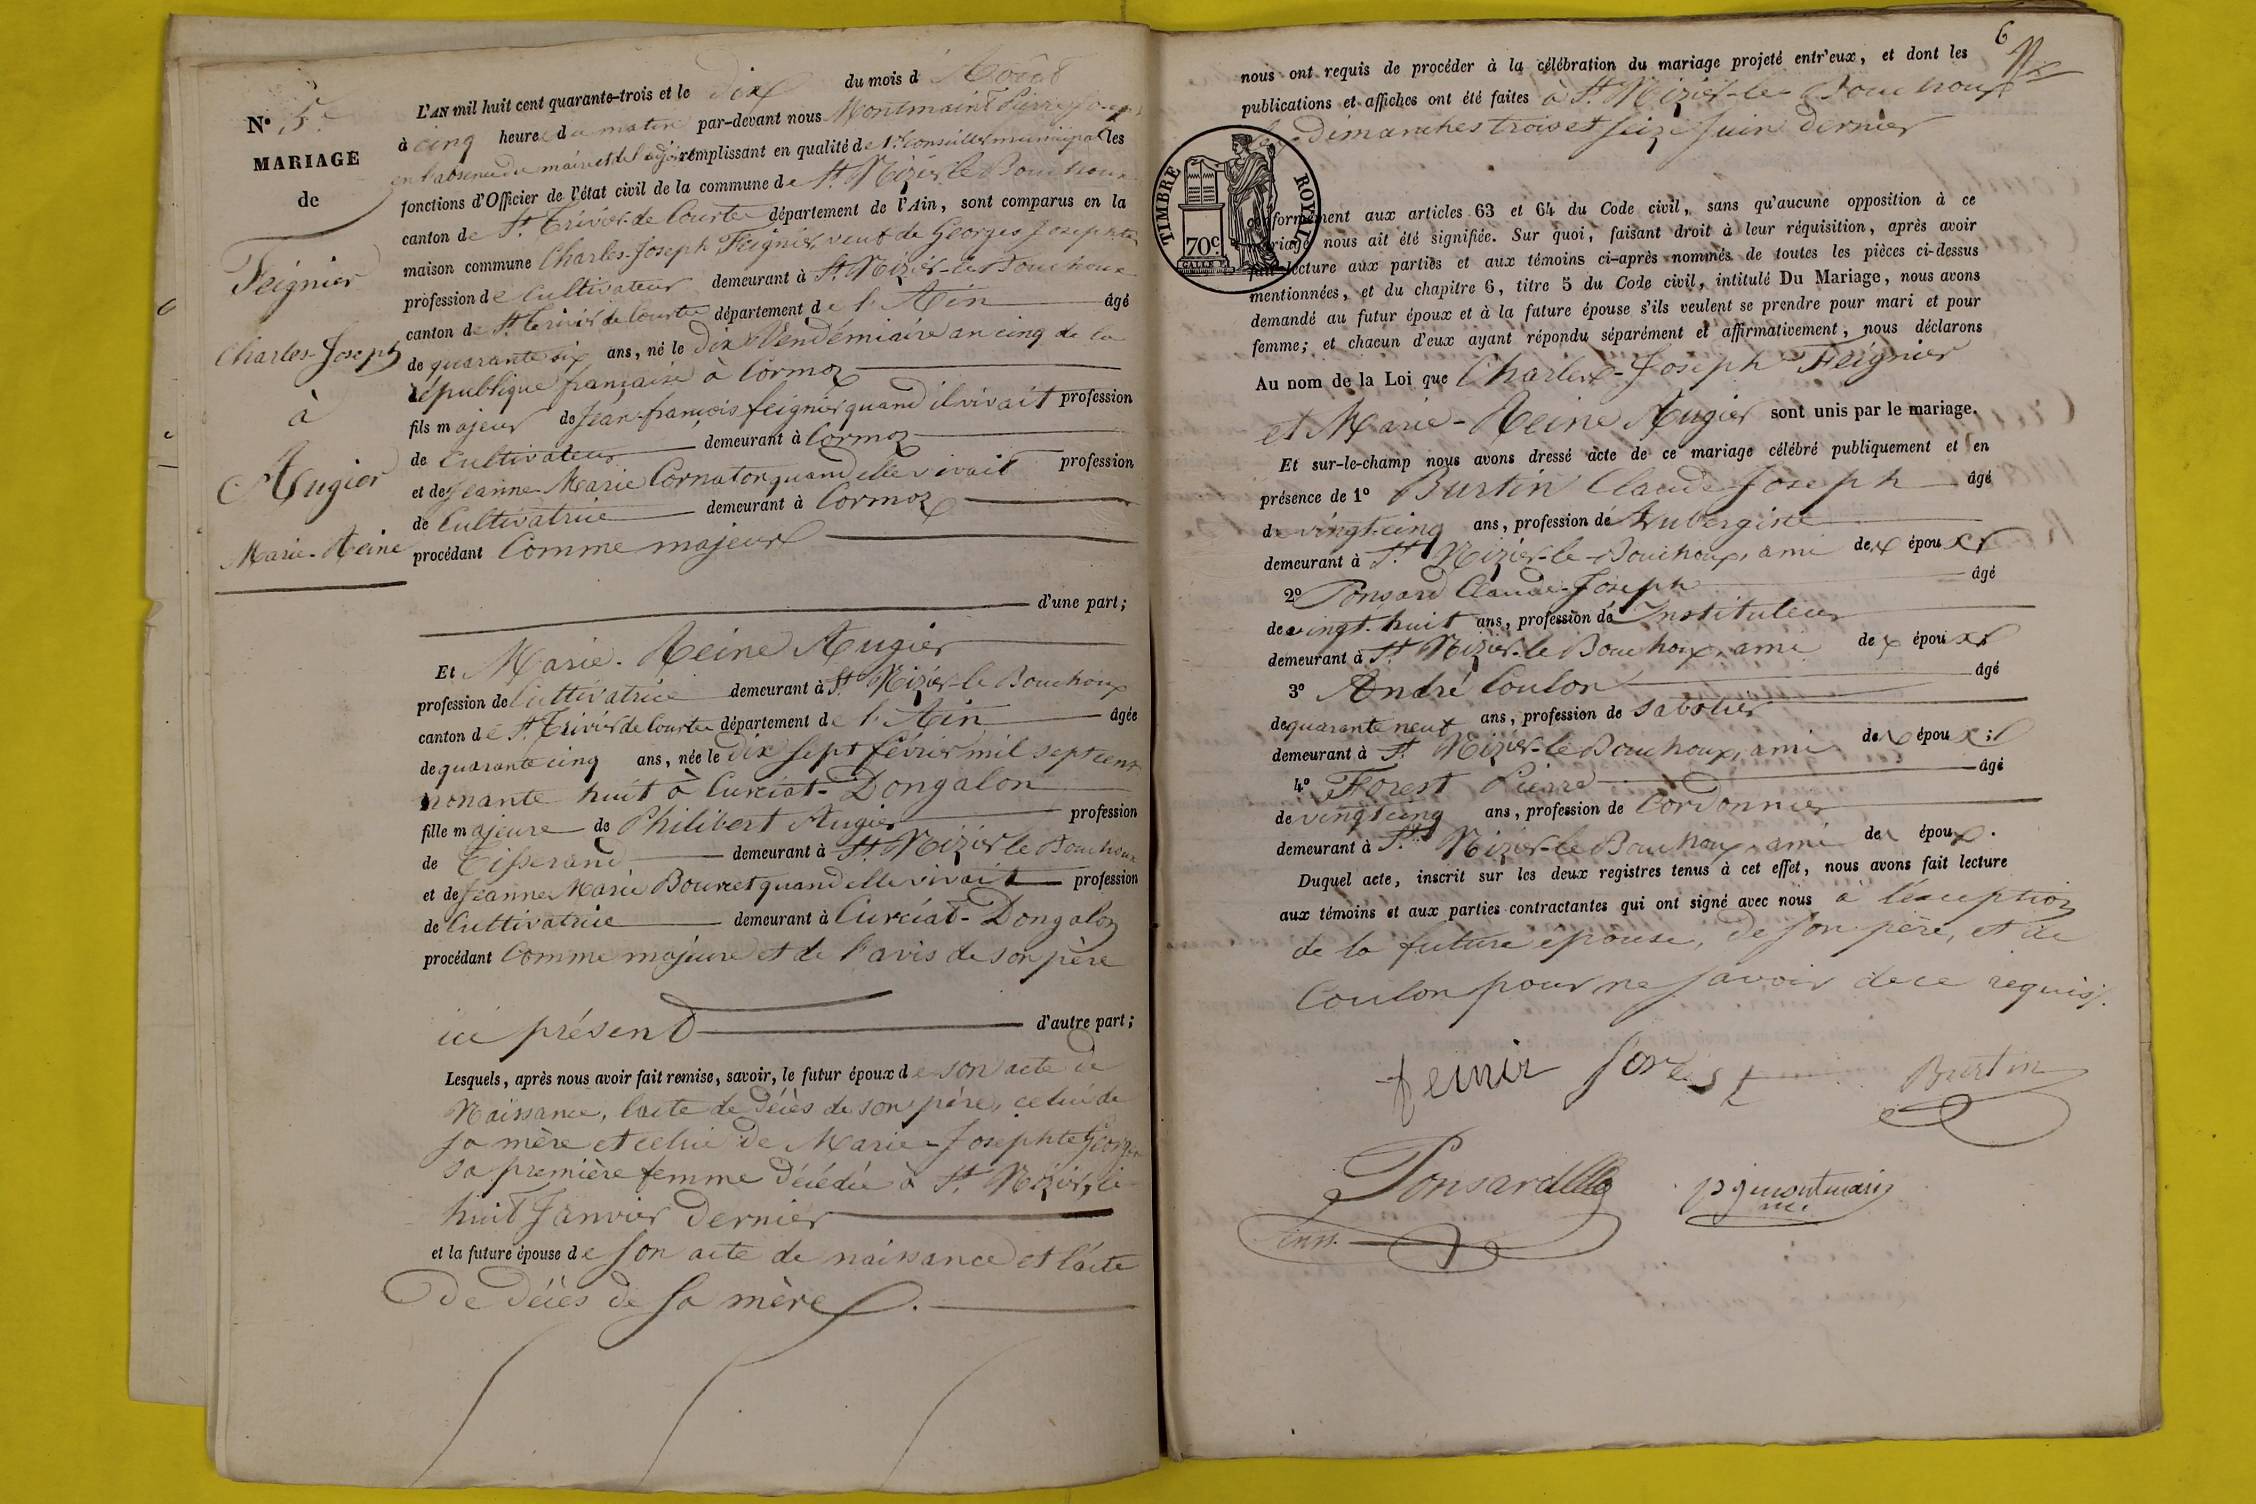 N° 5e
MARIAGE
de
Feignier
Charles-Joseph
à
Augier
Marie-Reine
L'AN mil huit cent quarante-trois et le dix du mois d'Août
à cinq heure du matin par-devant nous Montmaint Pierre
en l'absence du maire et de l'adjoint remplissant en qualité de 1er Conseiller municipal les
fonctions d'Officier de l'état civil de la commune de St. Nizier le Bouchoux
canton de St. Trivier de Courtes département de l'Ain, sont comparus en la
maison commune Charles-Joseph Feignier, veuf de Georges Josephte
profession de Cultivateur demeurant à St. Nizier-le-Bouchoux
canton de St. Trivier de Courtes département de l'Ain âgé
de quarante six ans, né le dix Vendémiaire an cinq de la
république française à Cormoz
fils majeur de Jean-françois feignier quand il vivait profession
de Cultivateur demeurant à Cormoz
et de Jeanne-Marie Cornaton quand elle vivait profession
de Cultivatrice demeurant à Cormoz
procédant Comme majeur
d'une part;
Et Marie-Reine Augier
profession de Cultivatrice demeurant à St. Nizier-le Bouchoux
canton de St. Trivier de Courtes département de l'Ain âgée
de quarante cinq ans, née le dix sept février mil sept cent
nonante huit à Curciat-Dongalon
fille majeure de Philibert Augier profession
de Tisserand demeurant à St. Nizier le Bouchoux
et de Jeanne Marie Bourcet quand elle vivait profession
de Cultivatrice demeurant à Curciat-Dongalon
procédant Comme majeure et de l'avis de son père
ici présent d'autre part;
Lesquels, après nous avoir fait remise, savoir, le futur époux de son acte de
Naissance, l'acte de décès de son père, celui de
sa mère et celui de Marie-Josephte Georges
sa première femme décédée à St. Nizier, le
huit Janvier dernier
et la future épouse de son acte de naissance et l'acte
de décès de sa mère.
6
nous ont requis de procéder à la célébration du mariage projeté entr'eux, et dont les
publications et affiches ont été faites à St. Nizier-le-Bouchoux
les dimanches trois et seize Juin dernier
TIMBRE ROYAL
70c
conformément aux articles 63 et 64 du Code civil, sans qu'aucune opposition à ce
mariage nous ait été signifiée. Sur quoi, faisant droit à leur réquisition, après avoir
fait lecture aux parties et aux témoins ci-après nommés de toutes les pièces ci-dessus
mentionnées, et du chapitre 6, titre 5 du Code civil, intitulé Du Mariage, nous avons
demandé au futur époux et à la future épouse s'ils veulent se prendre pour mari et pour
femme; et chacun d'eux ayant répondu séparément et affirmativement, nous déclarons
Au nom de la Loi que Charles-Joseph Feignier
et Marie-Reine Augier sont unis par le mariage.
Et sur-le-champ nous avons dressé acte de ce mariage célébré publiquement et en
présence de 1° Burtin Claude Joseph âgé
de vingt-cinq ans, profession de Aubergiste
demeurant à St. Nizier-le-Bouchoux, ami dex époux
2° Ponsard Claude-Joseph âgé
de vingt-huit ans, profession de Instituteur
demeurant à St. Nizier-le Bouchoux, ami dex époux
3° André Coulon âgé
de quarante neuf ans, profession de sabotier
demeurant à St. Nizier-le Bouchoux, ami dex époux;
4° Forest Pierre âgé
de vingt cinq ans, profession de Cordonnier
demeurant à St. Nizier-le Bouchoux, ami dex époux.
Duquel acte, inscrit sur les deux registres tenus à cet effet, nous avons fait lecture
aux témoins et aux parties contractantes qui ont signé avec nous à l'éxception
de la future épouse, de son père, et de
Coulon pour ne savoir de ce requis.
forest Burtin
Ponsard
Inst.